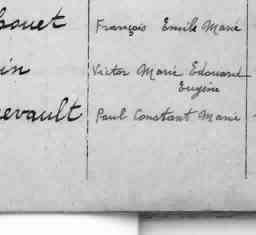 François Emile Marie
Victor Marie Edouard
Eugène
Paul Constant Marie